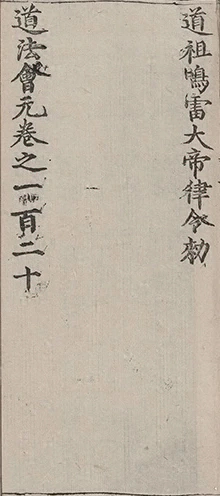 道祖鳴雷大帝律令勑
道法會元卷之一百二十